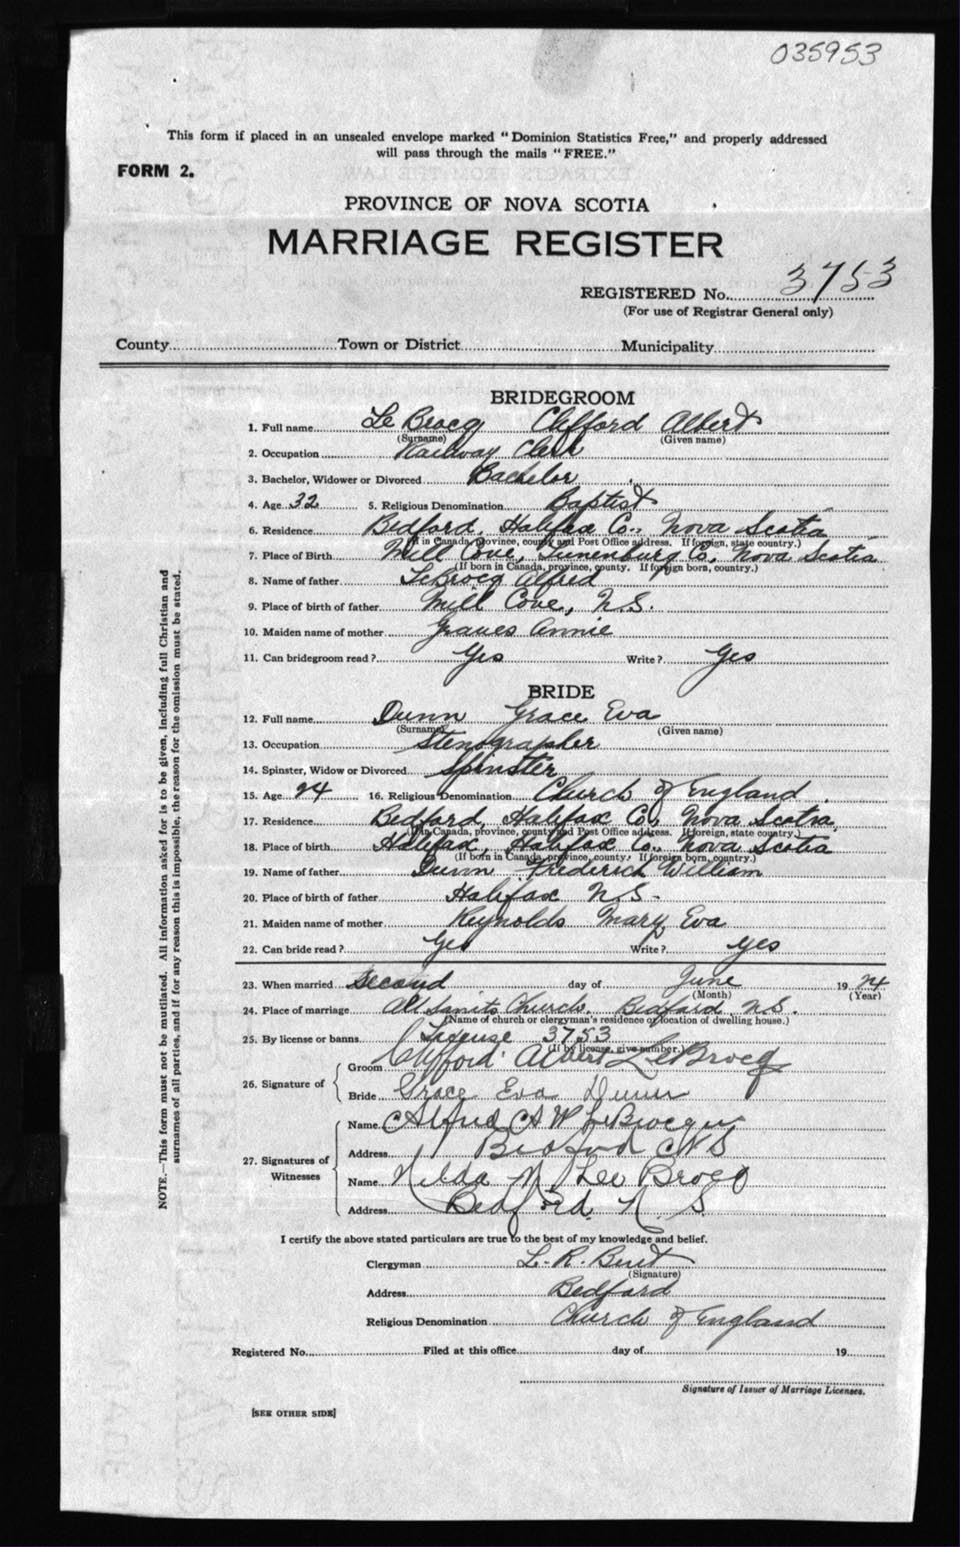 035953
This form if placed in an unsealed envelope marked "Dominion Statistics Free," and properly addressed
will pass through the mails "FREE."
FORM 2.
PROVINCE OF NOVA SCOTIA
MARRIAGE REGISTER
REGISTERED No. 3753
(For use of Registrar General only)
County Town or District Municipality
BRIDEGROOM
1. Full name Le Brocq Clifford Albert
(Surname) (Given name)
2. Occupation Railway Clerk
3. Bachelor, Widower or Divorced Bachelor
4. Age 32 5. Religious Denomination Baptist
6. Residence Bedford, Halifax Co., Nova Scotia
(If in Canada, province, county and Post Office address. If foreign, state country.)
7. Place of Birth Mill Cove, Lunenburg Co, Nova Scotia
(If born in Canada, province, county. If foreign born, country.)
8. Name of father LeBrocq Alfred
9. Place of birth of father Mill Cove, N.S.
10. Maiden name of mother Graves Annie
11. Can bridegroom read? Yes Write? Yes
BRIDE
12. Full name Dunn Grace Eva
(Surname) (Given name)
13. Occupation Stenographer
14. Spinster, Widow or Divorced Spinster
15. Age 24 16. Religious Denomination Church of England
17. Residence Bedford, Halifax Co., Nova Scotia
(If in Canada, province, county and Post Office address. If foreign, state country.)
18. Place of birth Halifax, Halifax Co., Nova Scotia
(If born in Canada, province, county. If foreign born, country.)
19. Name of father Dunn Frederick William
20. Place of birth of father Halifax N.S.
21. Maiden name of mother Reynolds Mary Eva
22. Can bride read? Yes Write? Yes
23. When married second day of June 19 24
(Month) (Year)
24. Place of marriage All Sanits Church, Bedford N.S.
(Name of church or clergyman's residence or location of dwelling house.)
25. By license or banns License 3753
(If by license, give number.)
26. Signature of
Groom Clifford Albert LeBrocq
Bride Grace Eva Dunn
27. Signatures of Witnesses
Name Alfred A W LeBrocq
Address Bedford NS
Name Hilda M Lee Brocq
Address Bedford. N. S.
I certify the above stated particulars are true to the best of my knowledge and belief.
Clergyman L. R. Bent
(Signature)
Address Bedford
Religious Denomination Church of England
Registered No. Filed at this office day of 19
Signature of Issuer of Marriage Licenses.
[SEE OTHER SIDE]
NOTE.—This form must not be mutilated. All information asked for is to be given, including full Christian and
surnames of all parties, and if for any reason this is impossible, the reason for the omission must be stated.